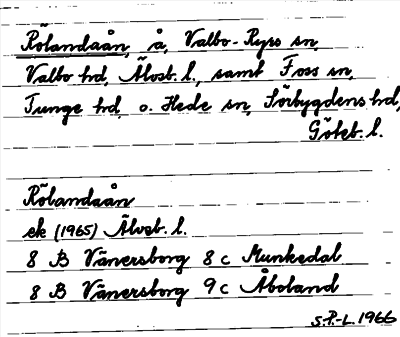 Rölandaån, å, Valbo-Ryrs sn,
Valbo hd, Älvsb. l., samt Foss sn,
Tunge hd, o. Hede sn, Sörbygdens hd,
Göteb. l.
Rölandaån
ek (1965) Älvsb. l.
8 B Vänersborg 8 c Munkedal
8 B Vänersborg 9 c Åboland
S.P.-L. 1966